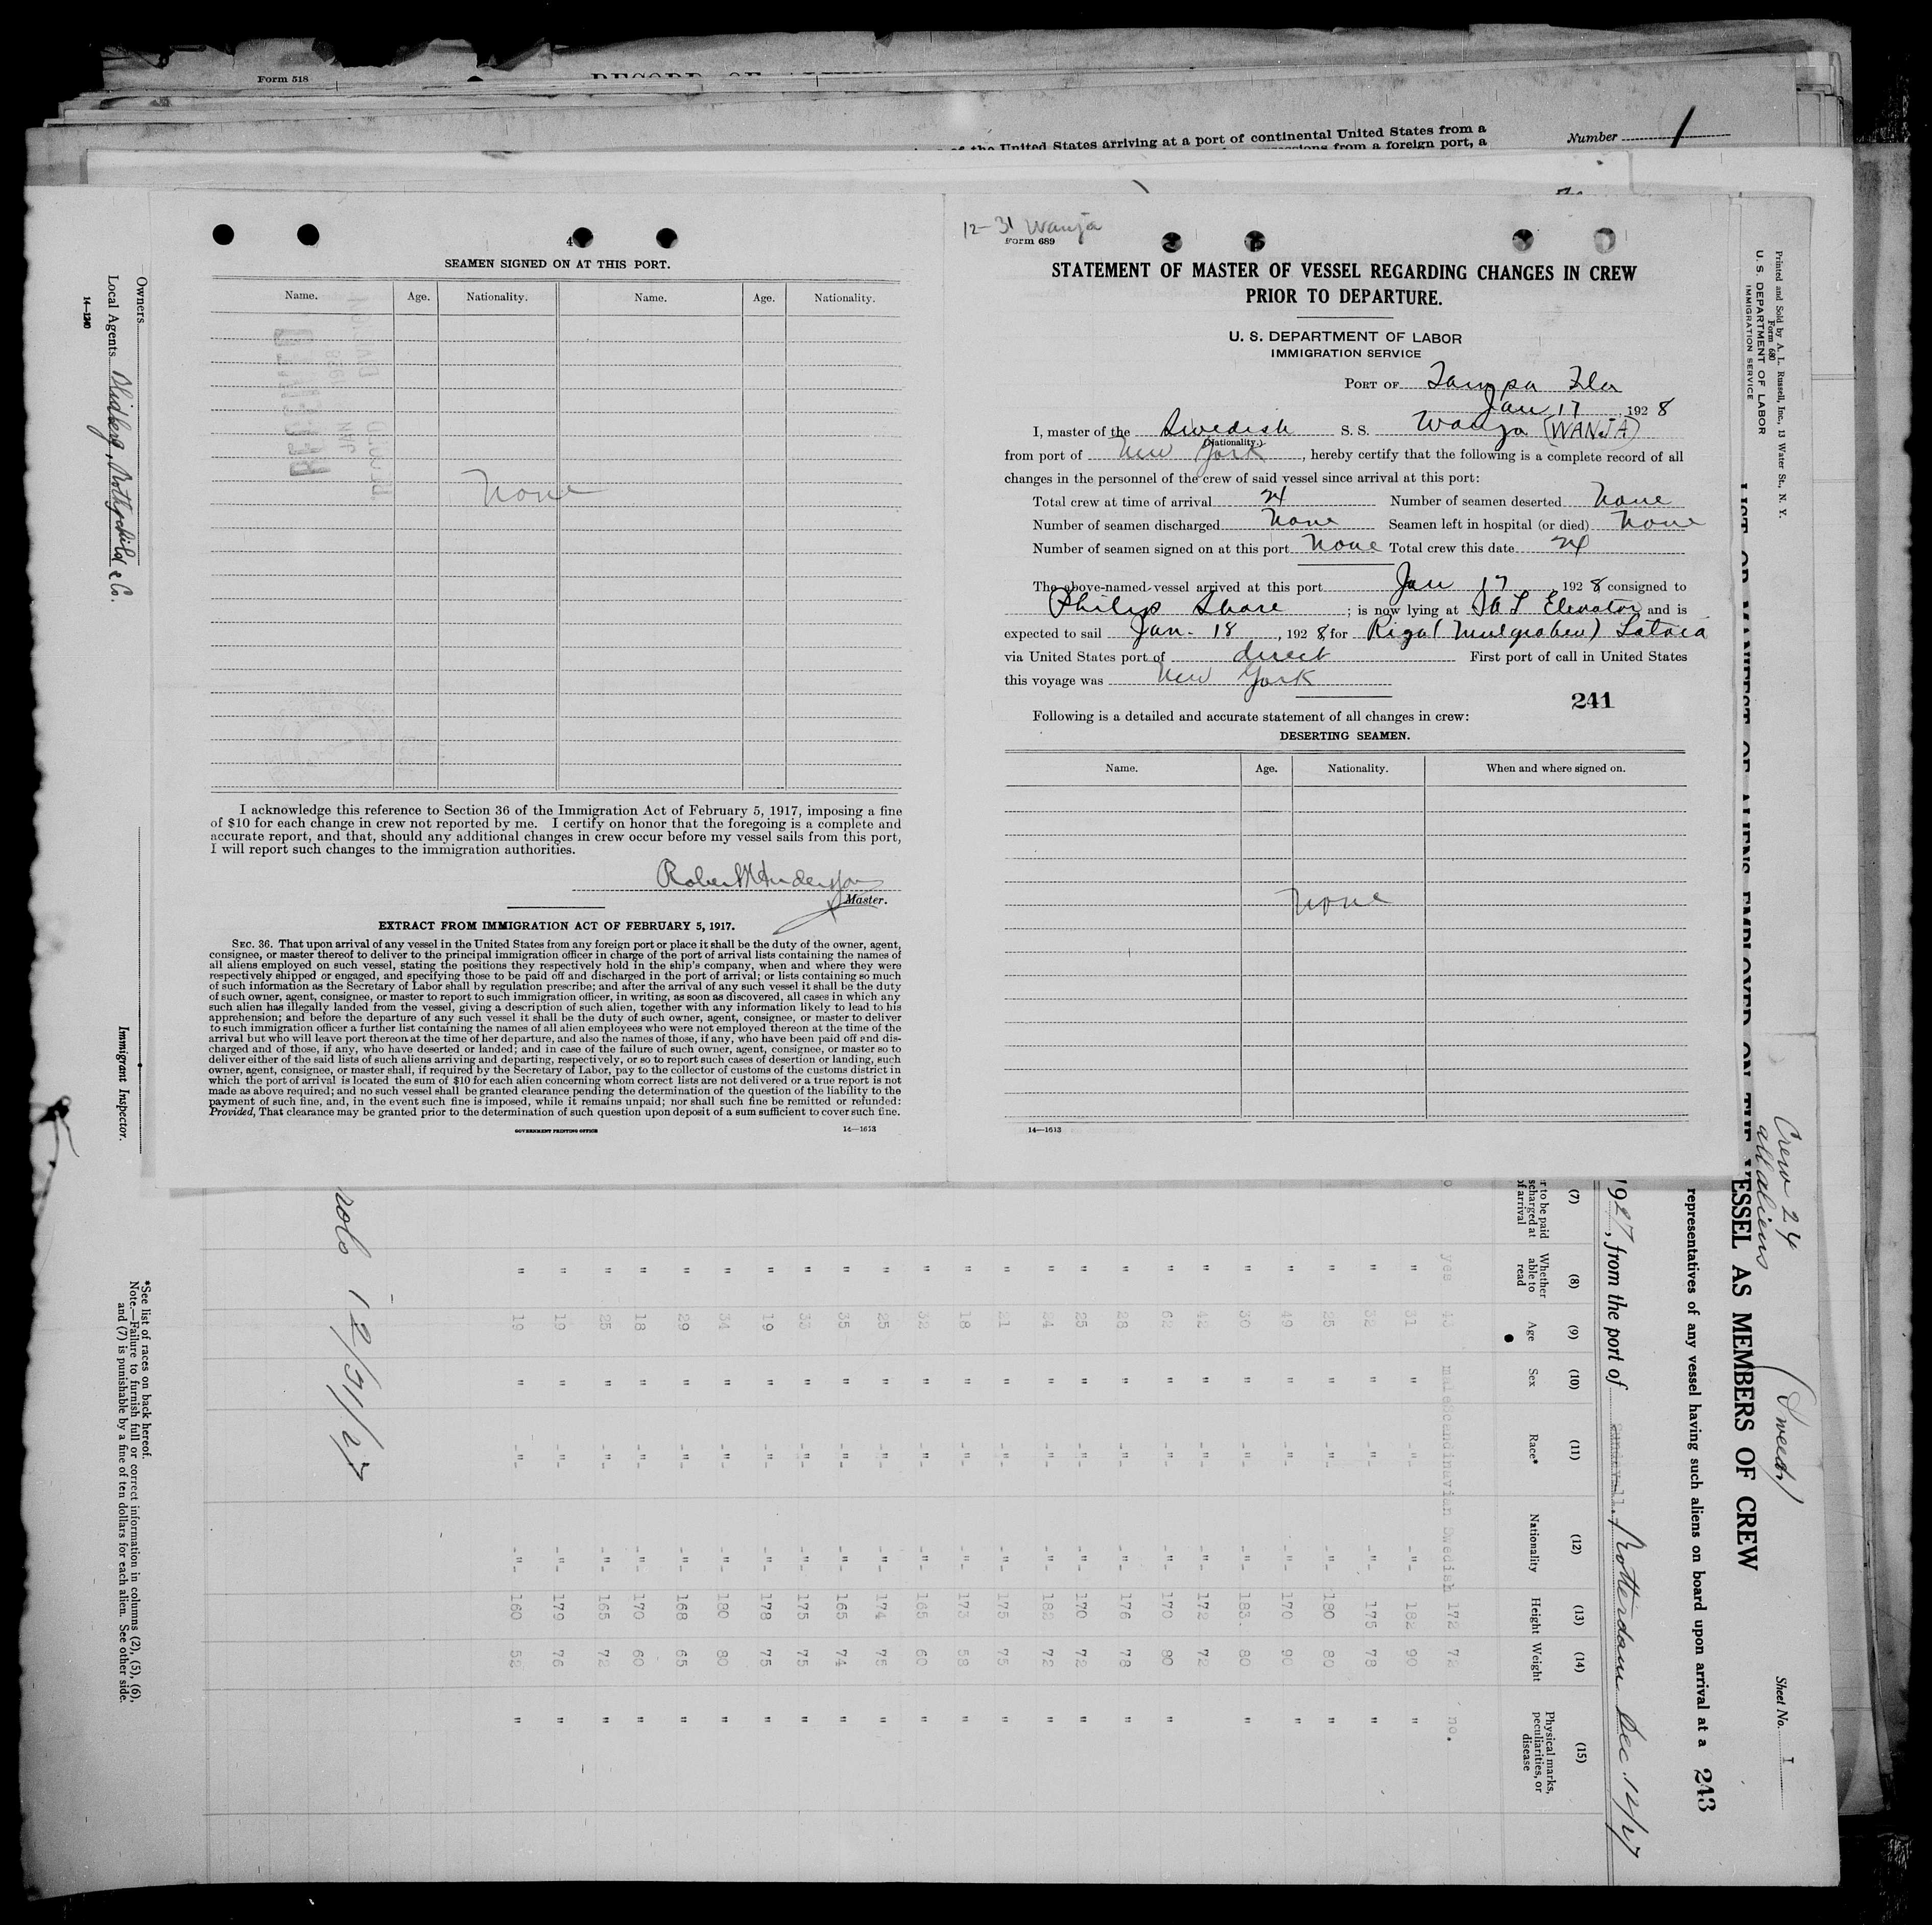 Form 518
of the United States arriving at a port of continental United States from a
from a foreign port, a
Number 1
4
SEAMEN SIGNED ON AT THIS PORT.
Name. Age. Nationality. Name. Age. Nationality.
None
I acknowledge this reference to Section 36 of the Immigration Act of February 5, 1917, imposing a fine
of $10 for each change in crew not reported by me. I certify on honor that the foregoing is a complete and
accurate report, and that, should any additional changes in crew occur before my vessel sails from this port,
I will report such changes to the immigration authorities.
Robert Anderson
Master.
EXTRACT FROM IMMIGRATION ACT OF FEBRUARY 5, 1917.
SEC. 36. That upon arrival of any vessel in the United States from any foreign port or place it shall be the duty of the owner, agent,
consignee, or master thereof to deliver to the principal immigration officer in charge of the port of arrival lists containing the names of
all aliens employed on such vessel, stating the positions they respectively hold in the ship's company, when and where they were
respectively shipped or engaged, and specifying those to be paid off and discharged in the port of arrival; or lists containing so much
of such information as the Secretary of Labor shall by regulation prescribe; and after the arrival of any such vessel it shall be the duty
of such owner, agent, consignee, or master to report to such immigration officer, in writing, as soon as discovered, all cases in which any
such alien has illegally landed from the vessel, giving a description of such alien, together with any information likely to lead to his
apprehension; and before the departure of any such vessel it shall be the duty of such owner, agent, consignee, or master to deliver
to such immigration officer a further list containing the names of all alien employees who were not employed thereon at the time of the
arrival but who will leave port thereon at the time of her departure, and also the names of those, if any, who have been paid off and dis-
charged and of those, if any, who have deserted or landed; and in case of the failure of such owner, agent, consignee, or master so to
deliver either of the said lists of such aliens arriving and departing, respectively, or so to report such cases of desertion or landing, such
owner, agent, consignee, or master shall, if required by the Secretary of Labor, pay to the collector of customs of the customs district in
which the port of arrival is located the sum of $10 for each alien concerning whom correct lists are not delivered or a true report is not
made as above required; and no such vessel shall be granted clearance pending the determination of the question of the liability to the
payment of such fine, and, in the event such fine is imposed, while it remains unpaid; nor shall such fine be remitted or refunded:
Provided, That clearance may be granted prior to the determination of such question upon deposit of a sum sufficient to cover such fine.
GOVERNMENT PRINTING OFFICE
14—1613
12-31 Wanja
Form 689
STATEMENT OF MASTER OF VESSEL REGARDING CHANGES IN CREW
PRIOR TO DEPARTURE.
U. S. DEPARTMENT OF LABOR
IMMIGRATION SERVICE
PORT OF Tampa Fla
Jan 17, 1928
I, master of the Swedish S. S. Wanja (WANJA)
(Nationality.)
from port of New York, hereby certify that the following is a complete record of all
changes in the personnel of the crew of said vessel since arrival at this port:
Total crew at time of arrival 24 Number of seamen deserted None
Number of seamen discharged None Seamen left in hospital (or died) None
Number of seamen signed on at this port None Total crew this date 24
The above-named vessel arrived at this port Jan 17, 1928 consigned to
Philip Shore; is now lying at SAL Elevator and is
expected to sail Jan. 18, 1928 for Riga (Muelgraben) Latvia
via United States port of direct First port of call in United States
this voyage was New York
241
Following is a detailed and accurate statement of all changes in crew:
DESERTING SEAMEN.
Name. Age. Nationality. When and where signed on.
None
14—1613
Owners
Local Agents Rothschild & Co.
14—1240
Immigrant Inspector.
*See list of races on back hereof.
Note.—Failure to furnish full or correct information in columns (2), (5), (6),
and (7) is punishable by a fine of ten dollars for each alien. See other side.
Printed and Sold by A. L. Russell, Inc., 13 Water St., N. Y.
Form 680
U. S. DEPARTMENT OF LABOR
IMMIGRATION SERVICE
LIST OR MANIFEST OF ALIENS EMPLOYED ON THE VESSEL AS MEMBERS OF CREW
Crew 24
all aliens
(Swed.)
Sheet No. I
representatives of any vessel having such aliens on board upon arrival at a 243
1927, from the port of Rotterdam Dec. 12/27
(7) (8) (9) (10) (11) (12) (13) (14) (15)
Whether able to read
Age
Sex
Race*
Nationality
Height
Weight
Physical marks, peculiarities, or disease
yes 43 male scandinavian Swedish 172 72 no.
" 31 " -"- -"- 182 90 "
" 32 " -"- -"- 175 78 "
" 25 " -"- -"- 180 80 "
" 49 " -"- -"- 170 90 "
" 30 " -"- -"- 183. 80 "
" 42 " -"- -"- 172 72
" 62 " -"- -"- 170 80 "
" 28 " -"- -"- 176 78 "
" 25 " -"- -"- 170 72 "
" 24 " -"- -"- 182 72 "
" 21 " -"- -"- 175 75 "
" 18 " -"- -"- 173 58 "
" 32 " -"- -"- 165 60 "
" 25 " -"- -"- 174 75 "
" 35 " -"- -"- 165 74 "
" 33 " -"- -"- 175 75 "
" 19 " -"- -"- 178 75 "
" 34 " -"- -"- 180 80 "
" 29 " -"- -"- 168 65 "
" 18 " -"- -"- 170 60 "
" 25 " -"- -"- 165 72 "
" 19 " -"- -"- 179 76 "
" 19 " -"- -"- 160 52 "
12/31/27